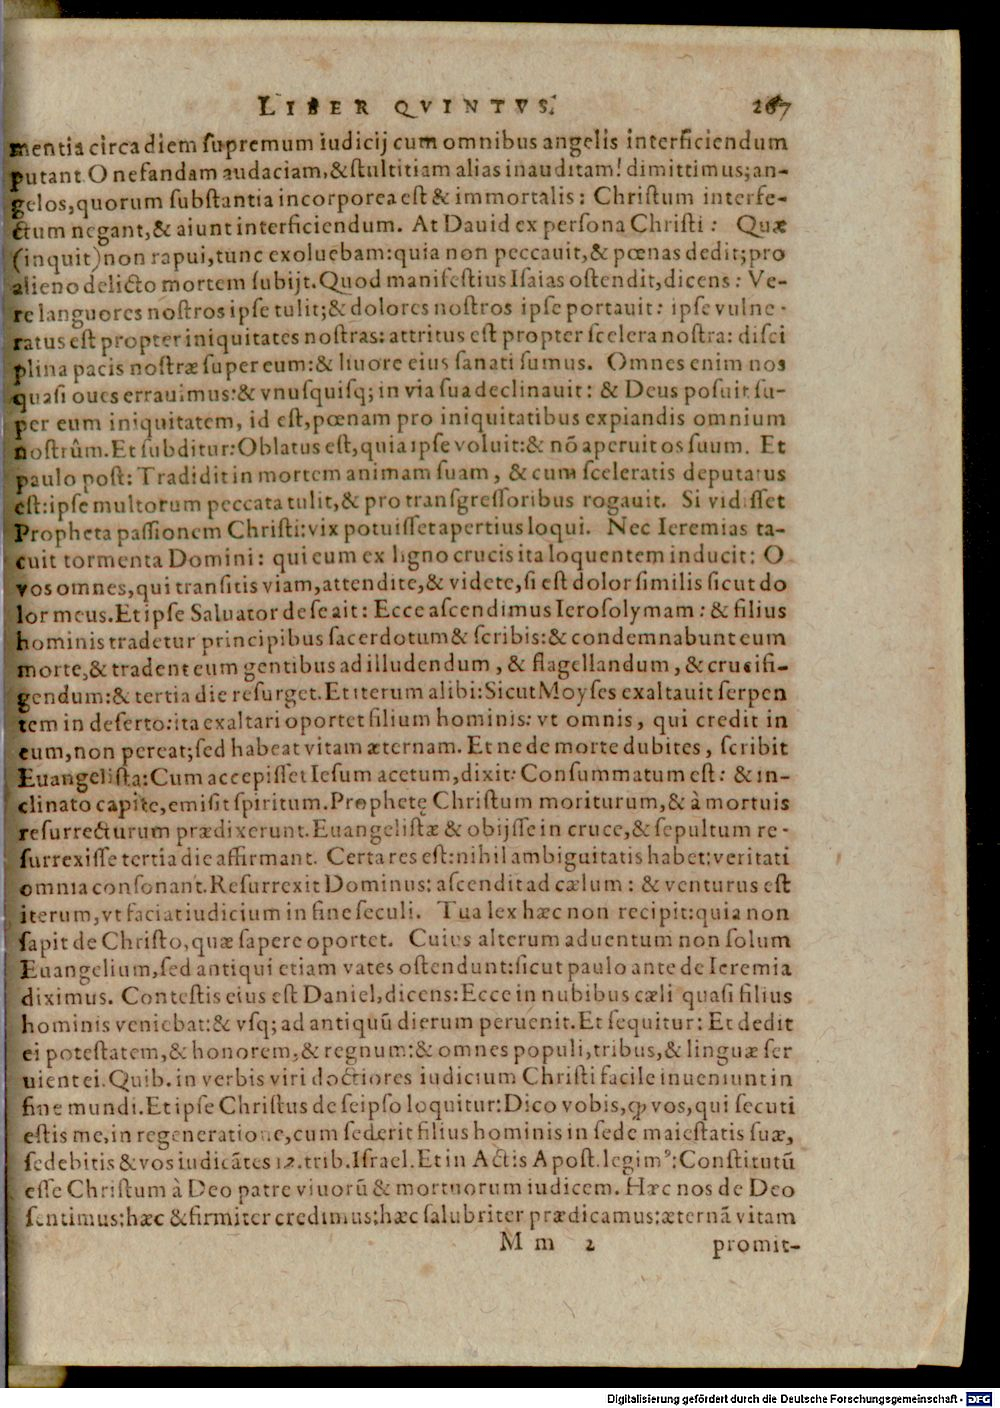 LIBER QVINTVS. 267
mentia circa diem ſupremum iudicij cum omnibus angelis interficiendum
putant O nefandam audaciam,&ſtultitiam alias inauditam! dimittimus;an-
gelos,quorum ſubſtantia incorporea eſt & immortalis: Chriſtum interfe-
ctum negant,& aiunt interficiendum. At Dauid ex perſona Chriſti: Quæ
(inquit)non rapui,tunc exoluebam:quia non peccauit,& pœnas dedit;pro
alieno delicto mortem ſubijt.Quod manifeſtius Iſaias oſtendit,dicens: Ve-
re languores noſtros ipſe tulit;& dolores noſtros ipſe portauit: ipſe vulne-
ratus eſt propter iniquitates noſtras: attritus eſt propter ſcelera noſtra: diſci
plina pacis noſtræ ſuper eum:& liuore eius ſanati ſumus. Omnes enim nos
quaſi oues errauimus:& vnuſquiſq; in via ſua declinauit: & Deus poſuit ſu-
per eum iniquitatem, id eſt,pœnam pro iniquitatibus expiandis omnium
noſtrûm.Et ſubditur:Oblatus eſt,quia ipſe voluit:& nõ aperuit os ſuum. Et
paulo poſt: Tradidit in mortem animam ſuam, & cum ſceleratis deputatus
eſt:ipſe multorum peccata tulit,& pro tranſgreſſoribus rogauit. Si vidiſſet
Propheta paſſionem Chriſti:vix potuiſſet apertius loqui. Nec Ieremias ta-
cuit tormenta Domini: qui eum ex ligno crucis ita loquentem inducit: O
vos omnes,qui tranſitis viam,attendite,& videte,ſi eſt dolor ſimilis ſicut do
lor meus.Et ipſe Saluator de ſe ait: Ecce aſcendimus Ieroſolymam: & filius
hominis tradetur principibus ſacerdotum & ſcribis:& condemnabunt eum
morte,& tradent eum gentibus ad illudendum, & flagellandum, & crucifi-
gendum:& tertia die reſurget.Et iterum alibi:Sicut Moyſes exaltauit ſerpen
tem in deſerto:ita exaltari oportet filium hominis: vt omnis, qui credit in
eum,non pereat;ſed habeat vitam æternam. Et ne de morte dubites, ſcribit
Euangeliſta:Cum accepiſſet Ieſum acetum,dixit: Conſummatum eſt: & in-
clinato capite,emiſit ſpiritum.Prophetę Chriſtum moriturum,& à mortuis
reſurrecturum prædixerunt.Euangeliſtæ & obijſſe in cruce,& ſepultum re-
ſurrexiſſe tertia die affirmant. Certa res eſt:nihil ambiguitatis habet:veritati
omnia conſonant.Reſurrexit Dominus: aſcendit ad cælum: & venturus eſt
iterum,vt faciat iudicium in fine ſeculi. Tua lex hæc non recipit:quia non
ſapit de Chriſto,quæ ſapere oportet. Cuius alterum aduentum non ſolum
Euangelium,ſed antiqui etiam vates oſtendunt:ſicut paulo ante de Ieremia
diximus. Conteſtis eius eſt Daniel,dicens:Ecce in nubibus cæli quaſi filius
hominis veniebat:& vſq; ad antiquũ dierum peruenit.Et ſequitur: Et dedit
ei poteſtatem,& honorem,& regnum:& omnes populi,tribus,& linguæ ſer
uient ei.Quib. in verbis viri doctiores iudicium Chriſti facile inueniunt in
fine mundi.Et ipſe Chriſtus de ſeipſo loquitur:Dico vobis,ꝙ vos,qui ſecuti
eſtis me,in regeneratione,cum ſederit filius hominis in ſede maieſtatis ſuæ,
ſedebitis & vos iudicãtes 12.trib.Iſrael.Et in Actis Apoſt.legimꝰ:Conſtitutũ
eſſe Chriſtum à Deo patre viuorũ & mortuorum iudicem. Hæc nos de Deo
ſentimus:hæc & firmiter credimus:hæc ſalubriter prædicamus:æternã vitam
M m 2 promit-
Digitalisierung gefördert durch die Deutsche Forschungsgemeinschaft - DFG